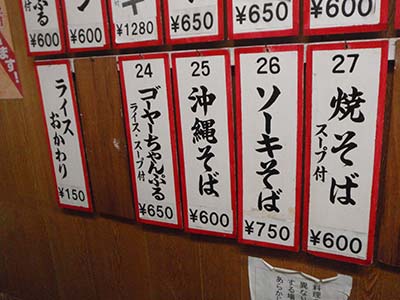 ぷる
¥600
¥650
¥1280
付
¥650
ぷる
¥600
ます!
ライス
おかわり
¥150
24
ゴーヤーちゃんぷる
ライス・スープ付
¥650
25
沖縄そば
¥600
26
ソーキそば
¥750
27
焼そば
スープ付
¥600
料理
異な
する場
あらか